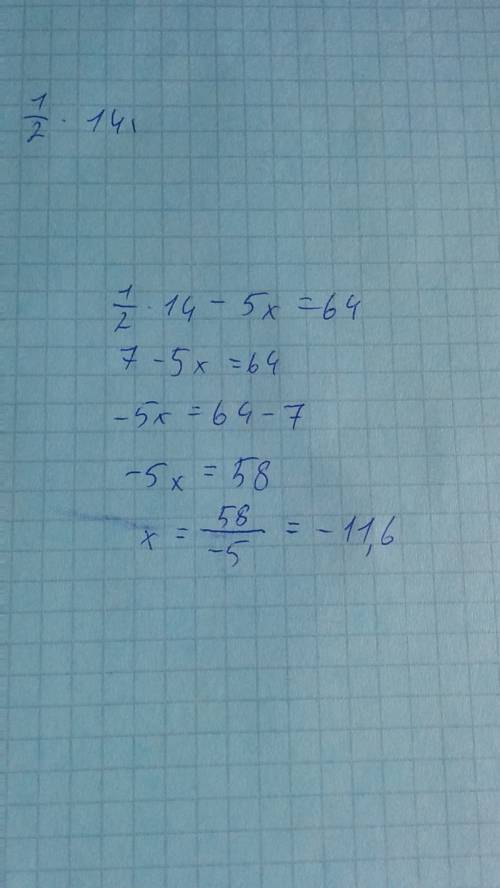 1/2 · 14
1/2 · 14 - 5x = 64
7 - 5x = 64
-5x = 64 - 7
-5x = 58
x = 58/-5 = -11,6